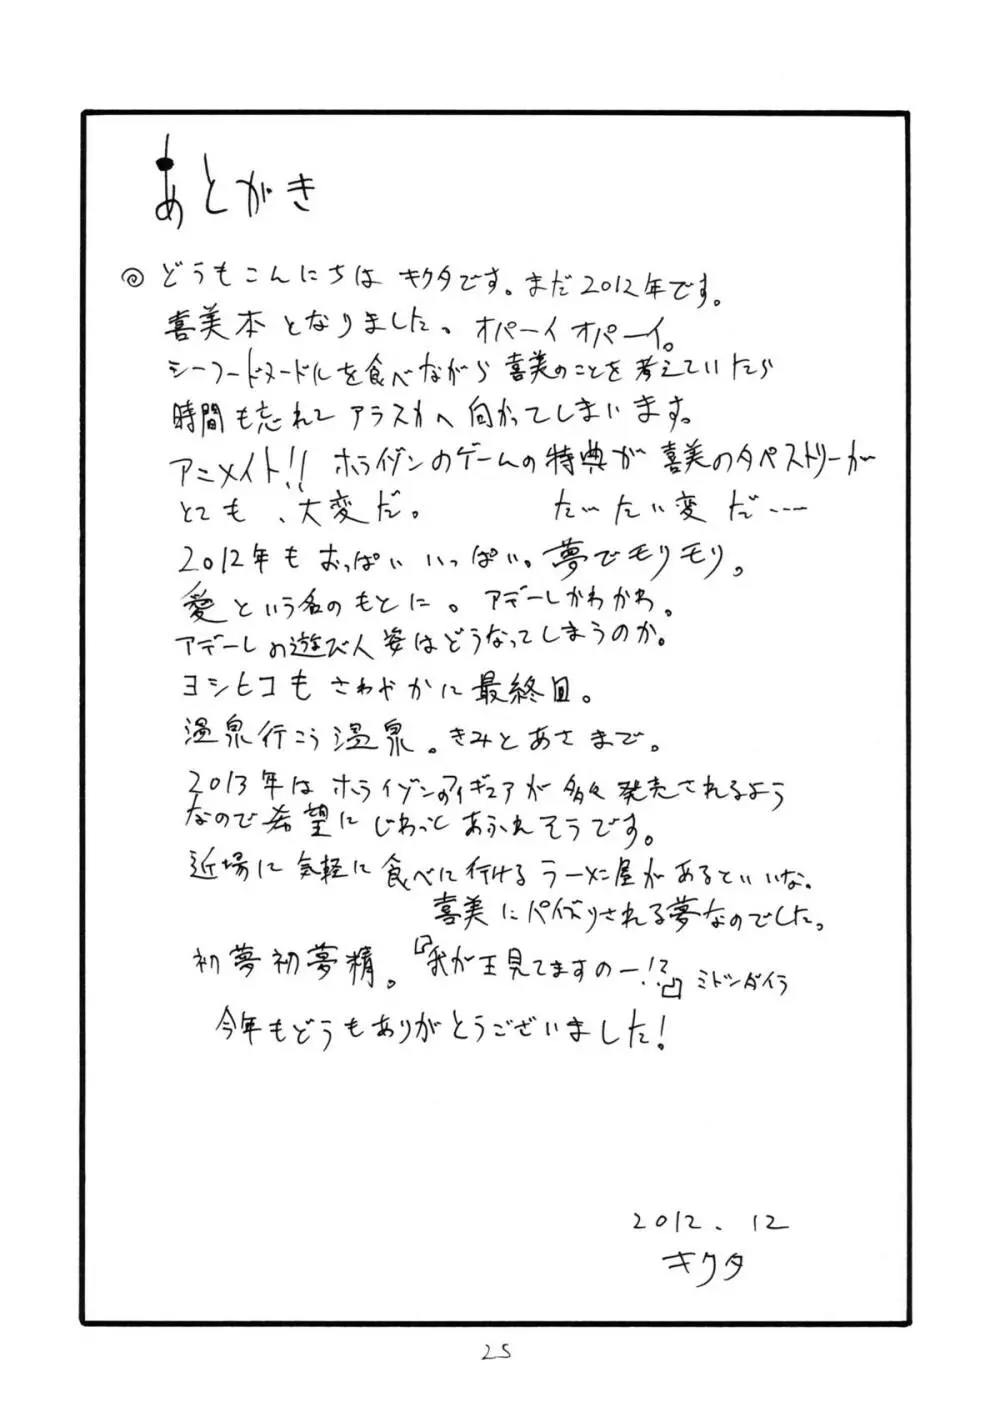 あとがき
◎どうもこんにちは キクタです。まだ2012年です。
喜美本となりました。オパーイオパーイ。
シーフードヌードルを食べながら喜美のことを考えていたら
時間も忘れて アラスカへ 向かってしまいます。
アニメイト!! ホライゾンのゲームの特典が 喜美のタペストリーが
とても、大変だ。 たいたい変だ……
2012年もおっぱいいっぱい。夢でモリモリ。
愛という名のもとに。アデーレかわかわ。
アデーレの遊び人姿はどうなってしまうのか。
ヨシヒコも さわやかに最終回。
温泉行こう温泉。きみとあさまで。
2013年は ホライゾンのフィギュアが多々発売されるよう
なので希望にじわっとあふれそうです。
近場に気軽に食べに行けるラーメン屋があるといいな。
喜美にパイズリされる夢なのでした。
初夢初夢精。『我が王見てますのー!?』ミトツダイラ
今年もどうもありがとうございました!
2012.12
キクタ
25